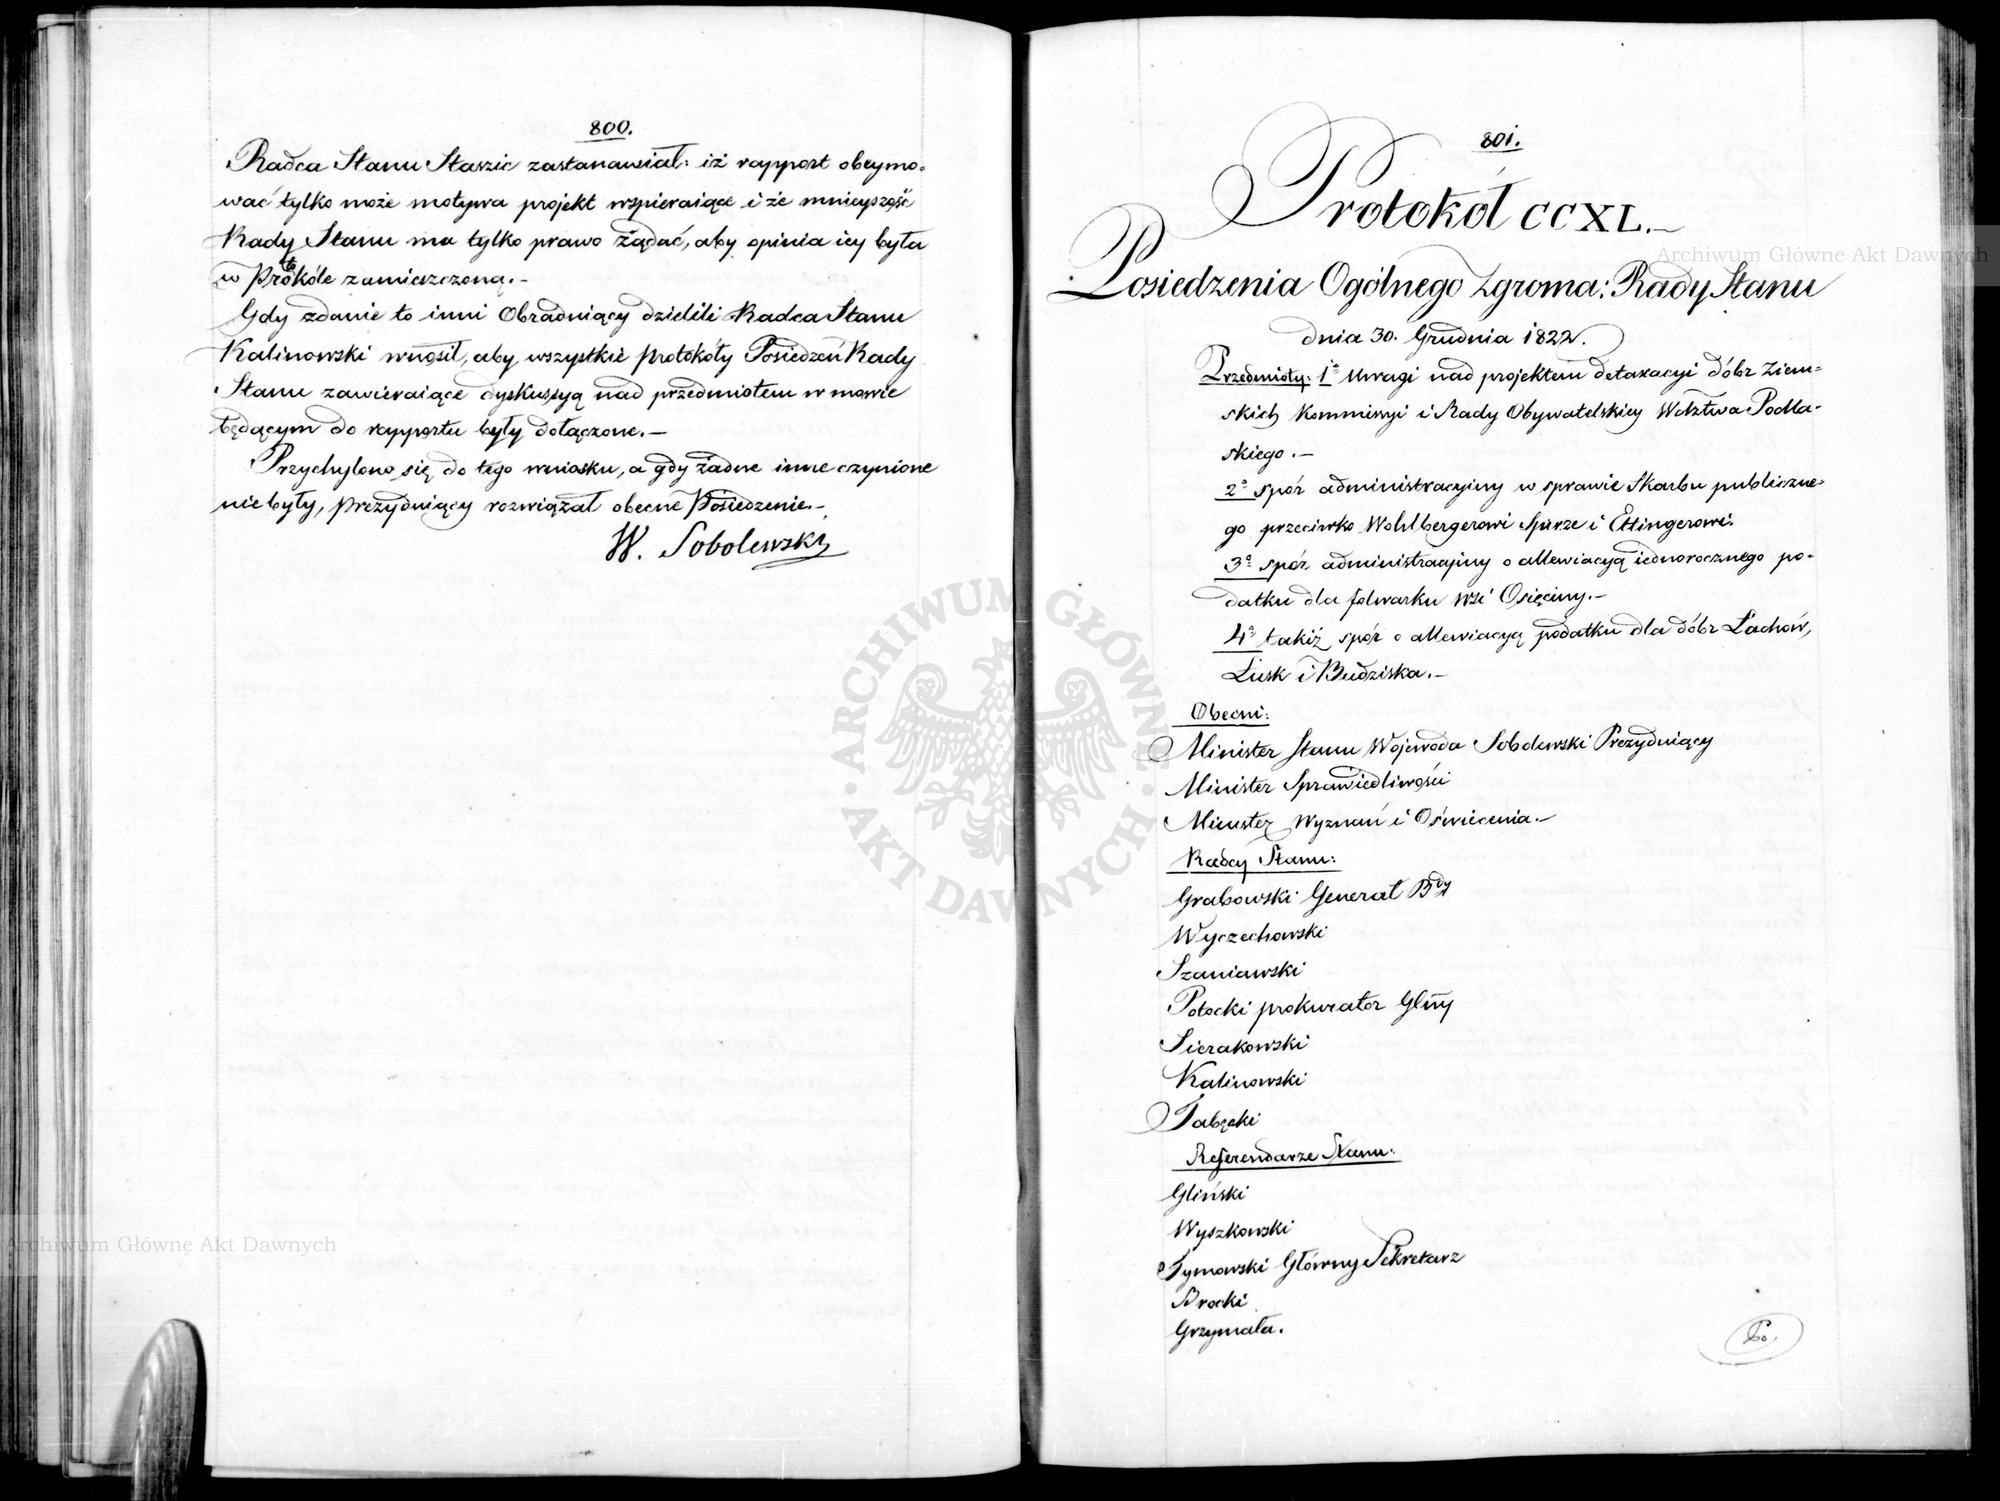 800.
Radca Stanu Staszic zastanawiał: iż rapport obeymo-
wać tylko może motywa projekt wspieraiące i że mnieyszość
Rady Stanu ma tylko prawo żądać, aby opinia iey była
w Protokóle zamieszczoną.-
Gdy zdanie to inni Obraduiący dzielili Radca Stanu
Kalinowski wnosił, aby wszystkie protokóły Posiedzeń Rady
Stanu zawieraiące dyskussyą nad przedmiotem w mowie
będącym do rapportu były dołączone.—
Przychylono się do tego wniosku, a gdy żadne inne czynione
nie były, Prezyduiący rozwiązał obecne Posiedzenie.-
W. Sobolewski
801.
Protokół CCXL.—
Posiedzenia Ogólnego Zgroma: Rady Stanu
dnia 30. Grudnia 1822.
Przedmioty: 1o Uwagi nad projektem detaxacyi dóbr Ziem-
skich Kommissyi i Rady Obywatelskiey Wdztwa Podla-
skiego.—
2o spór administracyiny w sprawie Skarbu publiczne-
go przeciwko Wohlbergerowi Spirze i Ettingerowi.
3o spór administracyiny o allewiacyą iednorocznego po-
datku dla folwarku wsi Osięciny.-
4o takiż spór o allewiacyą podatku dla dóbr Lachów,
Lusk i Budziska.-
Obecni:
Minister Stanu Wojewoda Sobolewski Prezyduiący
Minister Sprawiedliwości
Minister Wyznań i Oświecenia.-
Radcy Stanu:
Grabowski Generał Bdy
Wyczechowski
Szaniawski
Potocki prokurator Glny
Sierakowski
Kalinowski
Tabęcki
Referendarze Stanu:
Gliński
Wyszkowski
Tymowski Główny Sekretarz
Brocki
Grzymała.
Po.
Archiwum Główne Akt Dawnych
Archiwum Główne Akt Dawnych
ARCHIWUM GŁÓWNE AKT DAWNYCH